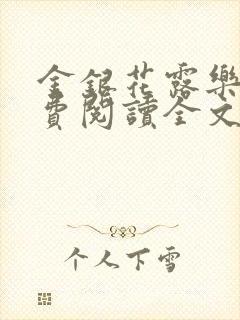 金銀花露樂
費閱讀全文
个人下雪